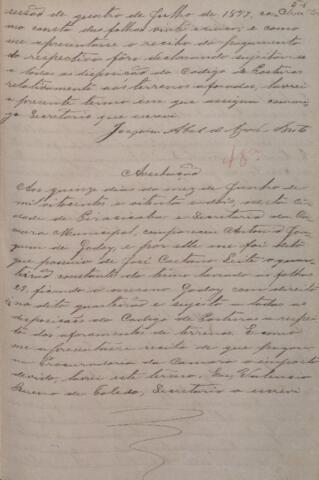 cessão de quatro de Julho de 1877, co-
mo consta das folhas vinte e cinco; e como
me apresentasse o recibo do pagamento
do respectivo fôro declarando sujeitar-se
a todas as disposições do Codigo de Posturas
relativamente aos terrenos aforados, lavrei
o presente termo em que assigna comi-
go Secretario que escrevi
Joaquim Abel de
48
Aos quinze dias do mez de Junho de
mil oitocentos e oitenta e, nesta Ci-
dade de Piracicaba e Secretaria da Ca-
mara Municipal, compareceu Antonio Joa-
quim de Godoy, e por elle me foi dito
que possuia de José Caetano Leite o quar-
teirão constante do termo lavrado as folhas
23, ficando o mesmo Godoy com direito
deste quarteirão e sujeito a todas as
disposições do Codigo de Posturas a respei-
to dos aforamentos de terrenos. E como
me apresentasse recibo de que pagou
na Procuradoria da Camara o imposto
devido, lavrei este termo. Eu, Valencio
Bueno de Toledo, Secretario o escrevi